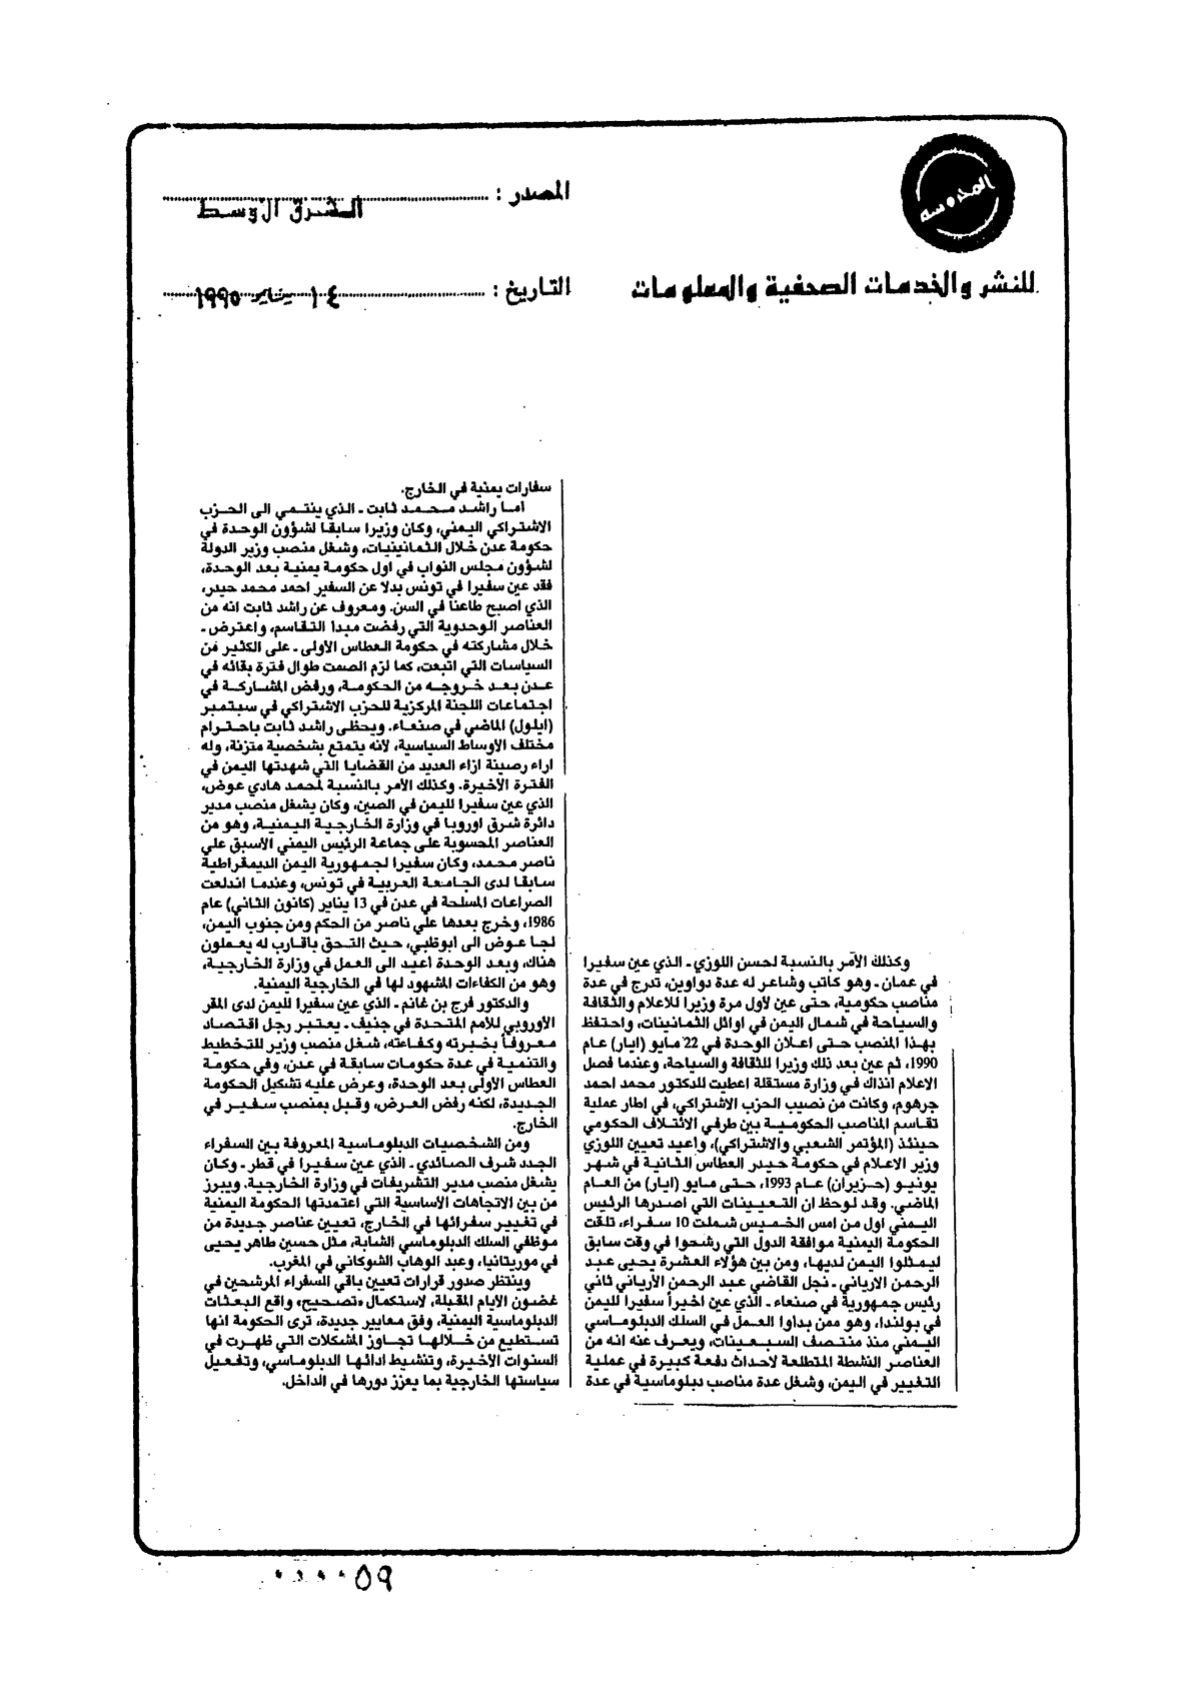 المحروسة
للنشر والخدمات الصحفية والمعلومات
المصدر : الشرق الأوسط
التاريخ : ١٤ يناير ١٩٩٥
وكذلك الأمر بالنسبة لحسن اللوزي ـ الذي عين سفيرا
في عمان ـ وهو كاتب وشاعر له عدة دواوين، تدرج في عدة
مناصب حكومية، حتى عين لأول مرة وزيرا للاعلام والثقافة
والسياحة في شمال اليمن في اوائل الثمانينات، واحتفظ
بهذا المنصب حتى اعلان الوحدة في 22 مايو (ايار) عام
1990، ثم عين بعد ذلك وزيرا للثقافة والسياحة، وعندما فصل
الاعلام انذاك في وزارة مستقلة اعطيت للدكتور محمد احمد
جرهوم، وكانت من نصيب الحزب الاشتراكي، في اطار عملية
تقاسم المناصب الحكومية بين طرفي الائتلاف الحكومي
حينئذ (المؤتمر الشعبي والاشتراكي)، واعيد تعيين اللوزي
وزير الاعلام في حكومة حيدر العطاس الثانية في شهر
يونيو (حزيران) عام 1993، حتى مايو (ايار) من العام
الماضي. وقد لوحظ ان التعيينات التي اصدرها الرئيس
اليمني اول من امس الخميس شملت 10 سفراء، تلقت
الحكومة اليمنية موافقة الدول التي رشحوا في وقت سابق
ليمثلوا اليمن لديها، ومن بين هؤلاء العشرة يحيى عبد
الرحمن الارياني ـ نجل القاضي عبد الرحمن الأرياني ثاني
رئيس جمهورية في صنعاء ـ الذي عين اخيراً سفيرا لليمن
في بولندا، وهو ممن بداوا العمل في السلك الدبلوماسي
اليمني منذ منتصف السبعينات، ويعرف عنه انه من
العناصر النشطة المتطلعة لاحداث دفعة كبيرة في عملية
التغيير في اليمن، وشغل عدة مناصب دبلوماسية في عدة
سفارات يمنية في الخارج.
اما راشد محمد ثابت ـ الذي ينتمي الى الحزب
الاشتراكي اليمني، وكان وزيرا سابقا لشؤون الوحدة في
حكومة عدن خلال الثمانينيات، وشغل منصب وزير الدولة
لشؤون مجلس النواب في اول حكومة يمنية بعد الوحدة،
فقد عين سفيرا في تونس بدلا عن السفير احمد محمد حيدر،
الذي اصبح طاعنا في السن. ومعروف عن راشد ثابت انه من
العناصر الوحدوية التي رفضت مبدا التقاسم، واعترض ـ
خلال مشاركته في حكومة العطاس الأولى ـ على الكثير من
السياسات التي اتبعت، كما لزم الصمت طوال فترة بقائه في
عدن بعد خروجه من الحكومة، ورفض المشاركة في
اجتماعات اللجنة المركزية للحزب الاشتراكي في سبتمبر
(ايلول) الماضي في صنعاء. ويحظى راشد ثابت باحترام
مختلف الأوساط السياسية، لأنه يتمتع بشخصية متزنة، وله
اراء رصينة ازاء العديد من القضايا التي شهدتها اليمن في
الفترة الأخيرة. وكذلك الأمر بالنسبة لمحمد هادي عوض،
الذي عين سفيرا لليمن في الصين، وكان يشغل منصب مدير
دائرة شرق اوروبا في وزارة الخارجية اليمنية، وهو من
العناصر المحسوبة على جماعة الرئيس اليمني الأسبق علي
ناصر محمد، وكان سفيرا لجمهورية اليمن الديمقراطية
سابقا لدى الجامعة العربية في تونس، وعندما اندلعت
الصراعات المسلحة في عدن في 13 يناير (كانون الثاني) عام
1986، وخرج بعدها علي ناصر من الحكم ومن جنوب اليمن،
لجا عوض الى ابوظبي، حيث التحق باقارب له يعملون
هناك، وبعد الوحدة اعيد الى العمل في وزارة الخارجية،
وهو من الكفاءات المشهود لها في الخارجية اليمنية.
والدكتور فرج بن غانم ـ الذي عين سفيرا لليمن لدى المقر
الأوروبي للأمم المتحدة في جنيف ـ يعتبر رجل اقتصاد
معروفاً بخبرته وكفاءته، شغل منصب وزير للتخطيط
والتنمية في عدة حكومات سابقة في عدن، وفي حكومة
العطاس الأولى بعد الوحدة، وعرض عليه تشكيل الحكومة
الجديدة، لكنه رفض العرض، وقبل بمنصب سفير في
الخارج.
ومن الشخصيات الدبلوماسية المعروفة بين السفراء
الجدد شرف الصائدي ـ الذي عين سفيرا في قطر ـ وكان
يشغل منصب مدير التشريفات في وزارة الخارجية. ويبرز
من بين الاتجاهات الأساسية التي اعتمدتها الحكومة اليمنية
في تغيير سفرائها في الخارج، تعيين عناصر جديدة من
موظفي السلك الدبلوماسي الشابة، مثل حسين طاهر يحيى
في موريتانيا، وعبد الوهاب الشوكاني في المغرب.
وينتظر صدور قرارات تعيين باقي السفراء المرشحين في
غضون الأيام المقبلة، لاستكمال «تصحيح» واقع البعثات
الدبلوماسية اليمنية، وفق معايير جديدة، ترى الحكومة انها
تستطيع من خلالها تجاوز المشكلات التي ظهرت في
السنوات الأخيرة، وتنشيط ادائها الدبلوماسي، وتفعيل
سياستها الخارجية بما يعزز دورها في الداخل.
٠٠٠٠٥٩